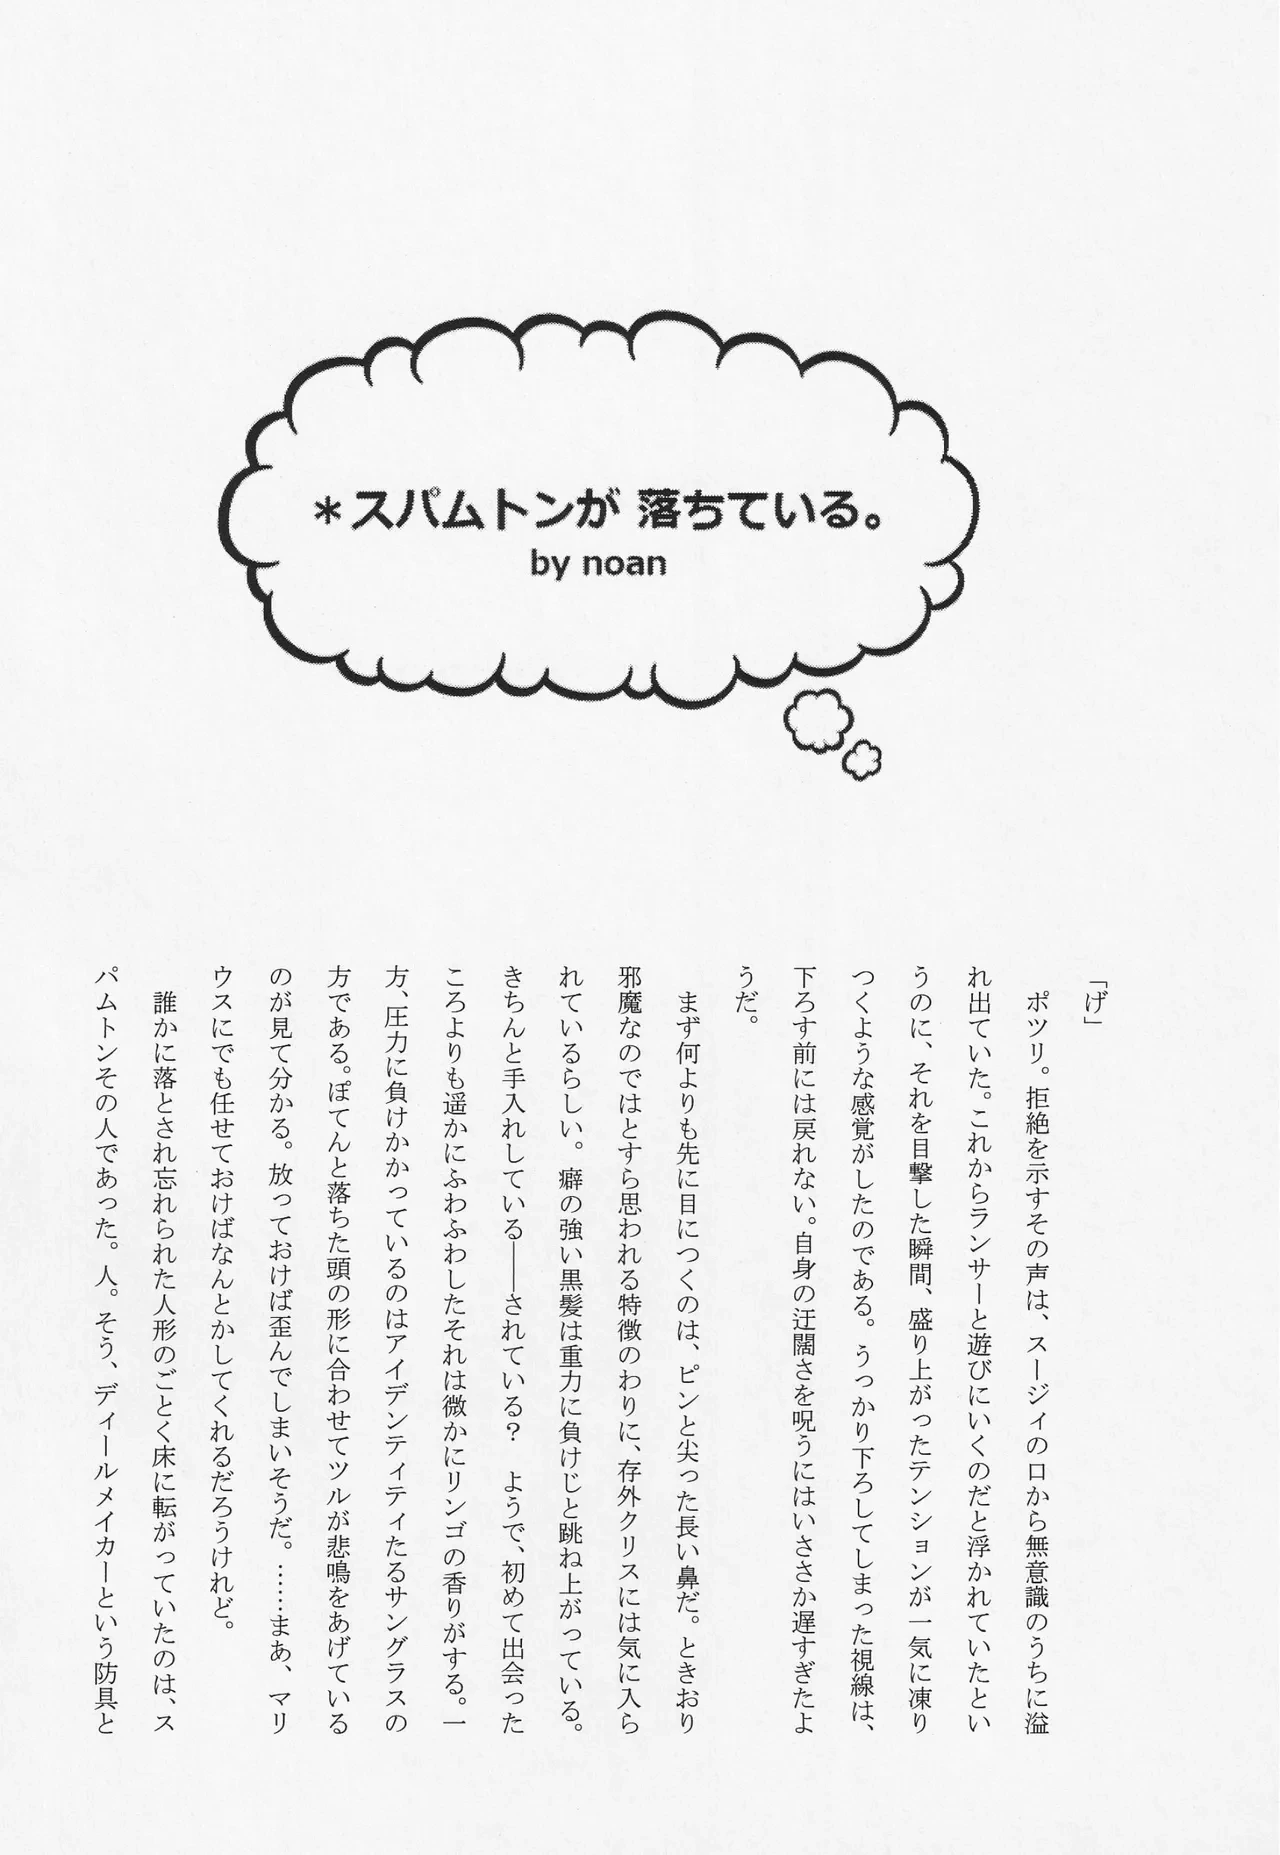 ＊スパムトンが 落ちている。
by noan
「げ」
　ポツリ。拒絶を示すその声は、スージィの口から無意識のうちに溢
れ出ていた。これからランサーと遊びにいくのだと浮かれていたとい
うのに、それを目撃した瞬間、盛り上がったテンションが一気に凍り
つくような感覚がしたのである。うっかり下ろしてしまった視線は、
下ろす前には戻れない。自身の迂闊さを呪うにはいささか遅すぎたよ
うだ。
　まず何よりも先に目につくのは、ピンと尖った長い鼻だ。ときおり
邪魔なのではとすら思われる特徴のわりに、存外クリスには気に入ら
れているらしい。癖の強い黒髪は重力に負けじと跳ね上がっている。
きちんと手入れしている――されている？　ようで、初めて出会った
ころよりも遥かにふわふわしたそれは微かにリンゴの香りがする。一
方、圧力に負けかかっているのはアイデンティティたるサングラスの
方である。ぽてんと落ちた頭の形に合わせてツルが悲鳴をあげている
のが見て分かる。放っておけば歪んでしまいそうだ。……まあ、マリ
ウスにでも任せておけばなんとかしてくれるだろうけれど。
　誰かに落とされ忘れられた人形のごとく床に転がっていたのは、ス
パムトンその人であった。人。そう、ディールメイカーという防具と